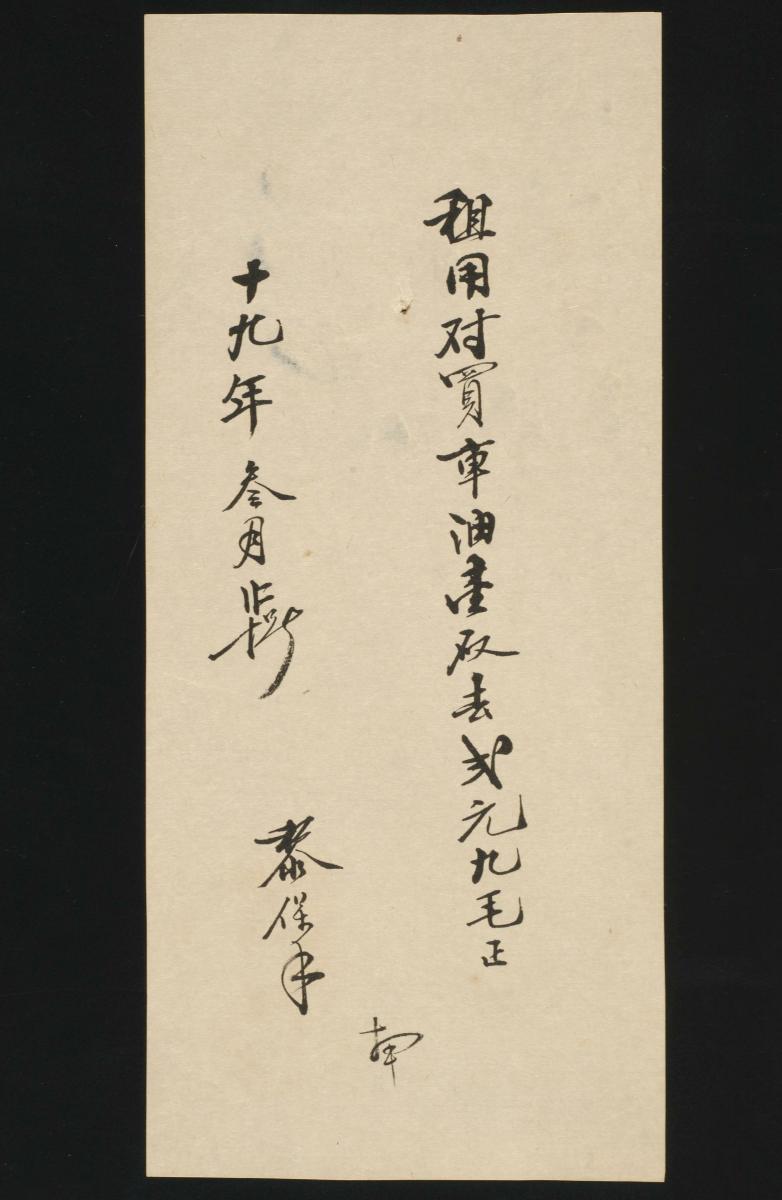 租用对買車油壹取去弍元九毛正
十九年叁月
泰保手